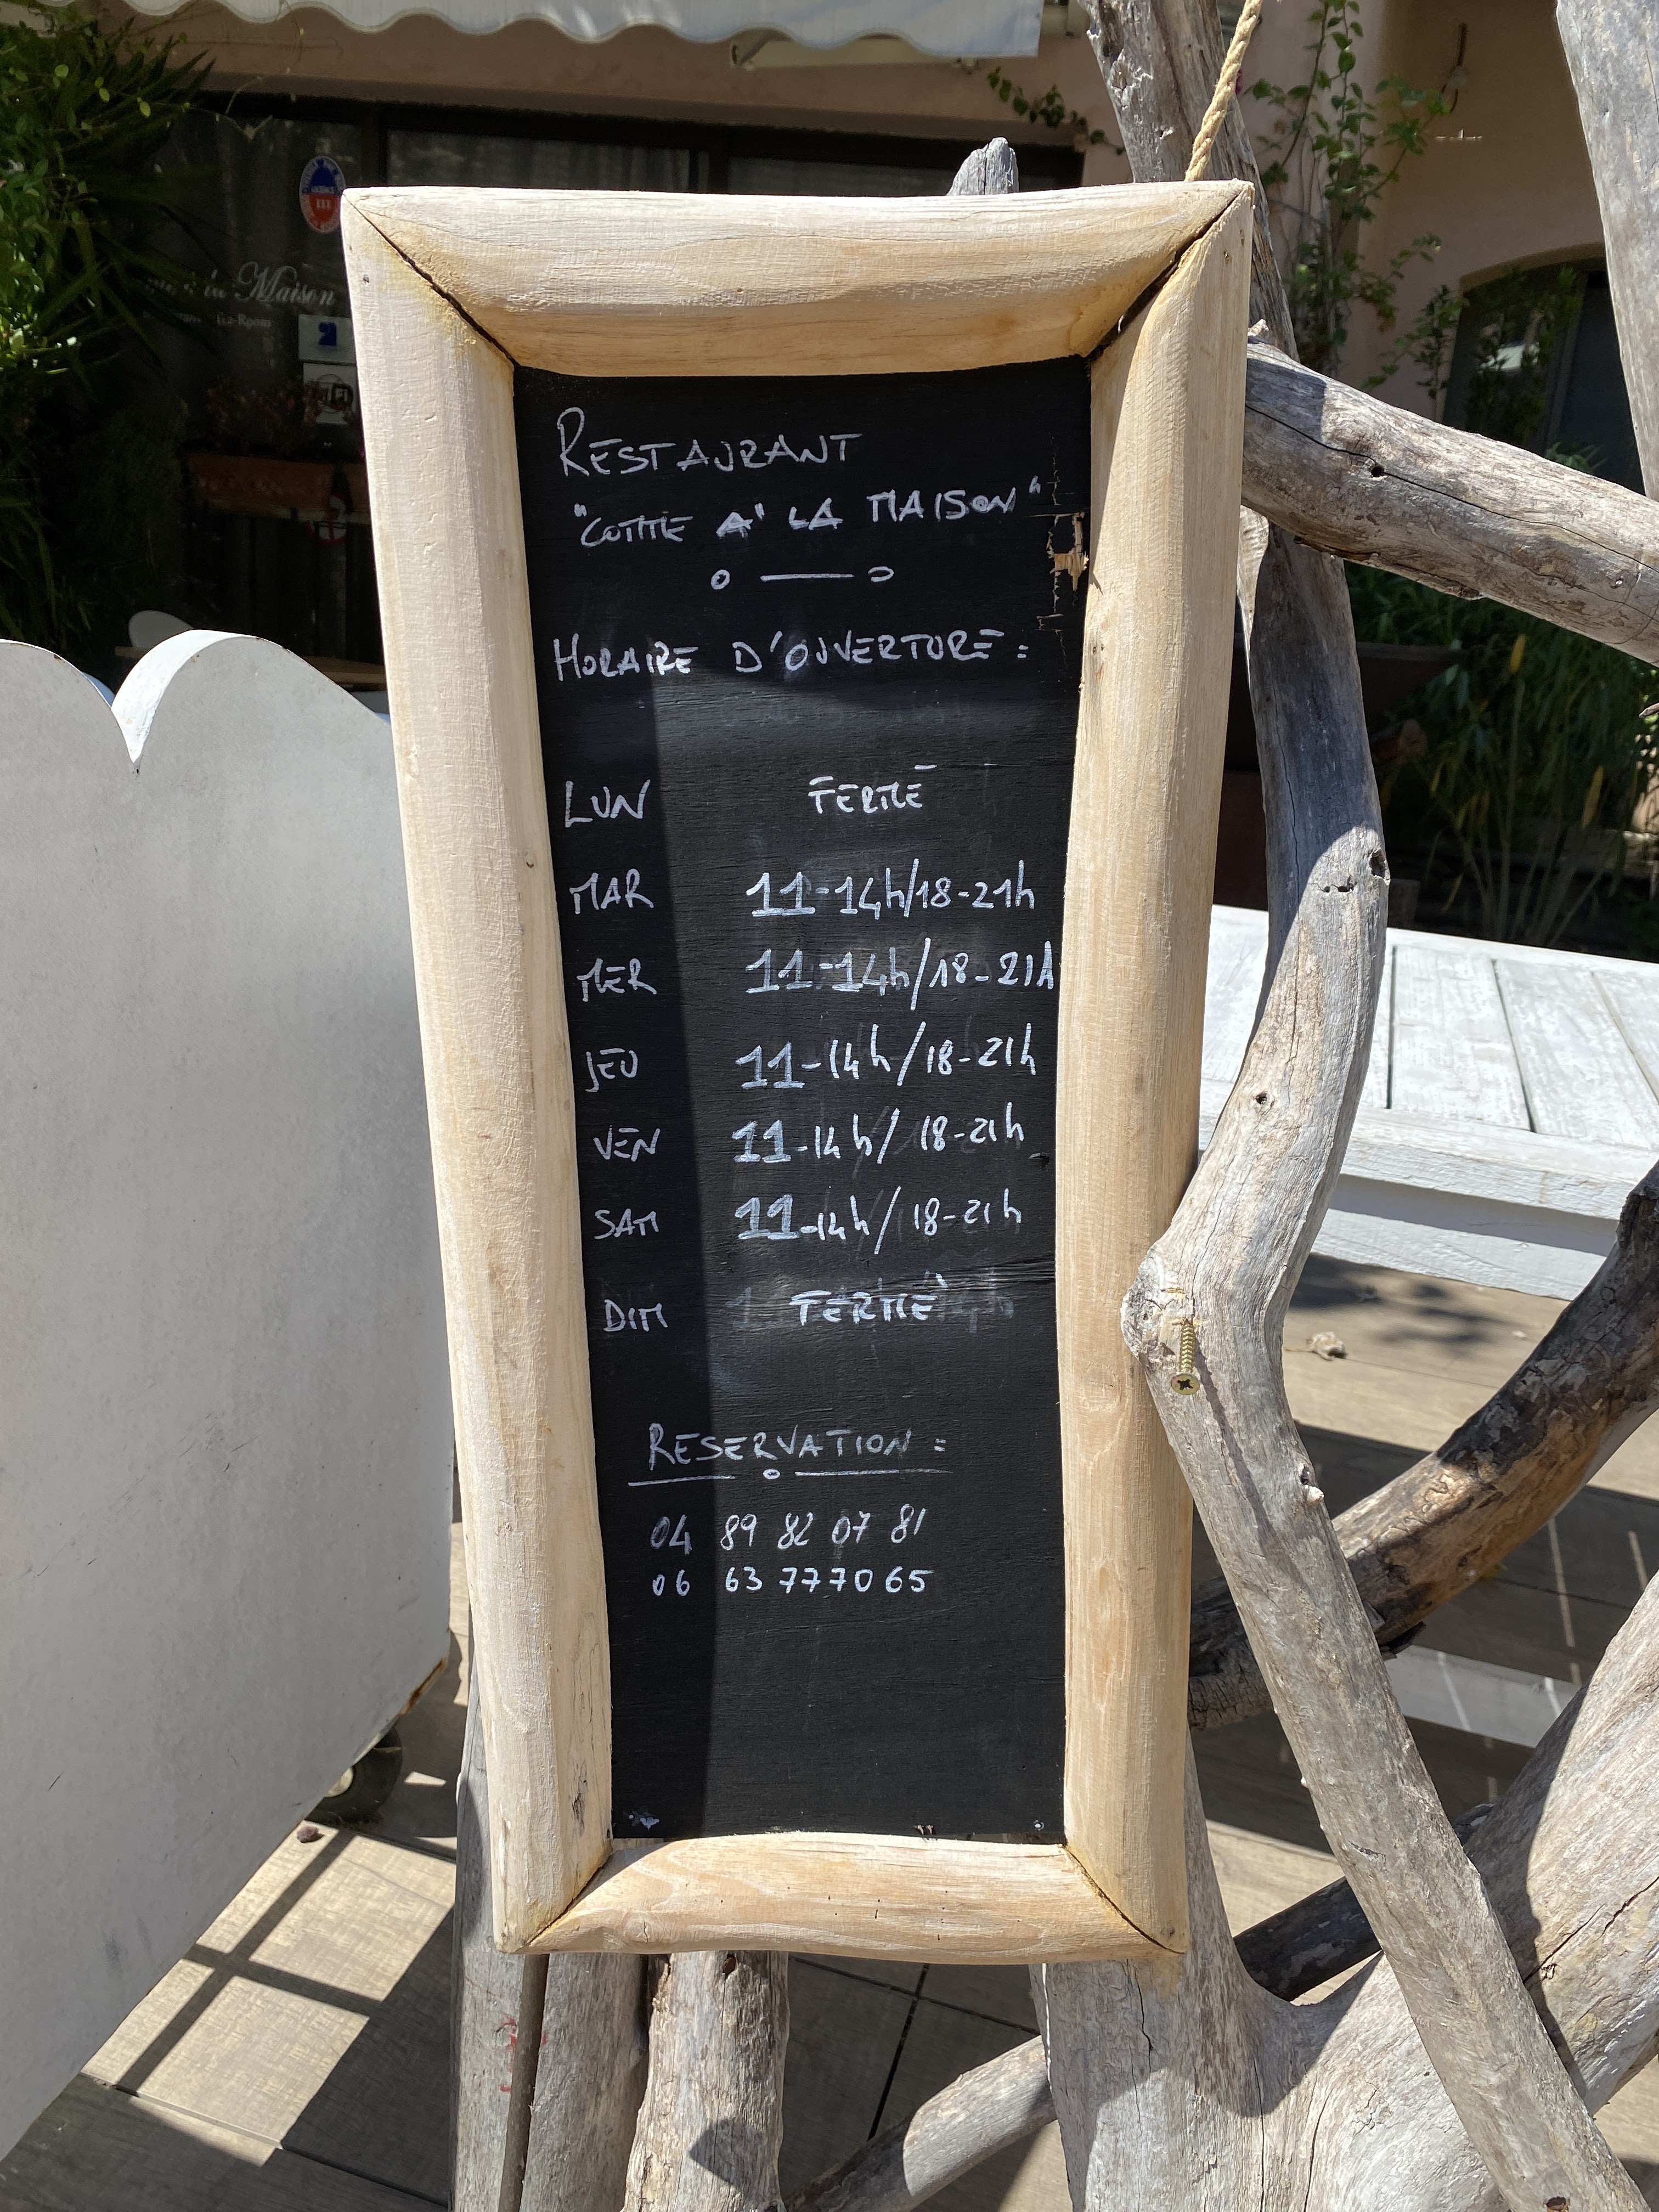 à la Maison
RESTAURANT
"COMME A' LA MAISON"
HORAIRE D'OUVERTURE:
LUN FERMÉ
MAR 11-14h/18-21h
MER 11-14h/18-21h
JEU 11-14h/18-21h
VEN 11-14h/18-21h
SAM 11-14h/18-21h
DIM FERMÉ
RESERVATION:
04 89 82 07 81
06 63 777065